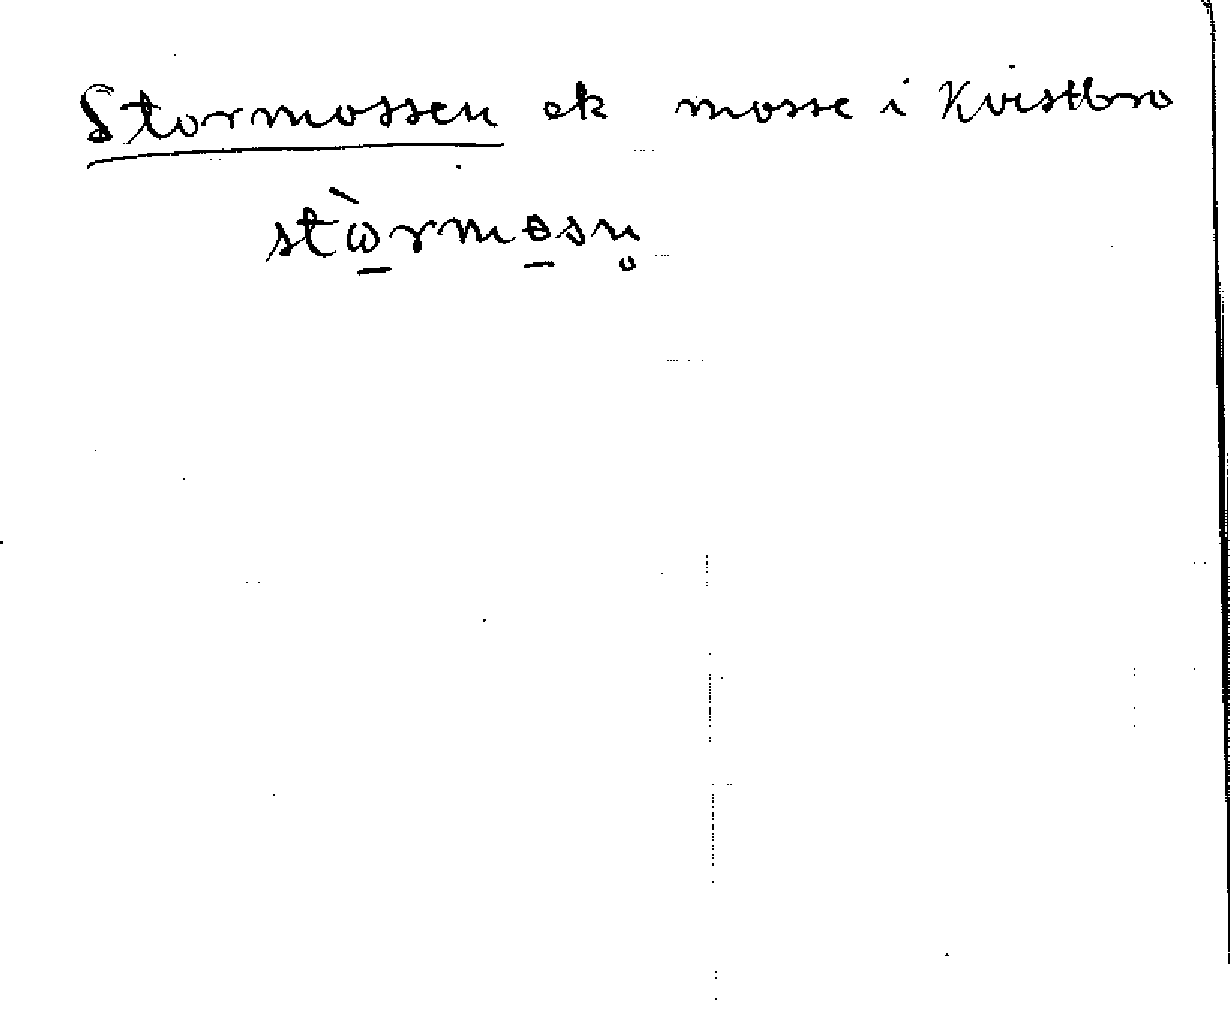 Stormossen ek mosse i Kvistbro
stὼ̱rmɵ̱sn̥